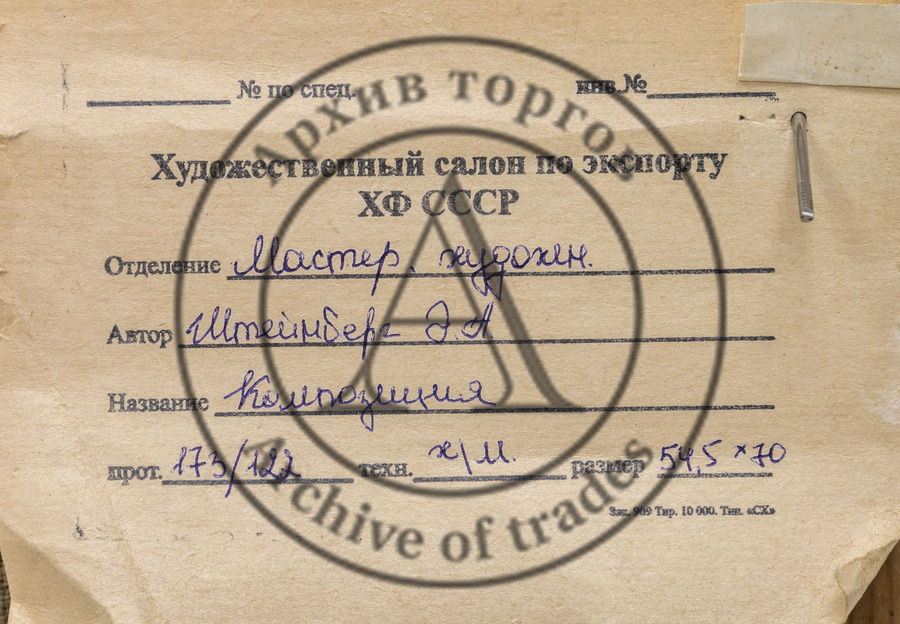 № по спец. инв.№
Художественный салон по экспорту
ХФ СССР
Отделение Мастер. художн.
Автор Штейнберг Э.А
Название Композиция
прот. 173/122 техн. х/м. размер 54,5 × 70
Зак. 909 Тир. 10 000. Тип. «СХ»
Архив торгов
Archive of trades